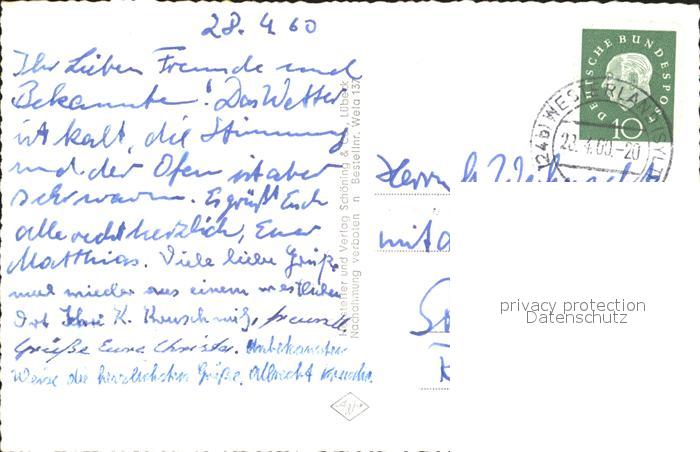 28. 4. 60
Ihr Lieben Freunde und
Bekannten! Das Wetter
ist kalt, die Stimmung
und der Ofen ist aber
sehr warm. Es grüßt Euch
alle recht herzlich, Euer
Matthias. Viele liebe Grüße
mal wieder aus einem westlichen
Ort Ihre K.
Grüße Eure Christa. Unbekannter
Weise die herzlichsten Grüße, Albrecht
Hersteller und Verlag Schöning & Co., Lübeck
Nachahmung verboten n Bestellnr. Wela 137
Agfa
DEUTSCHE BUNDESPOST
10
(24b) WESTERLAND (SYLT)
28.4.60.-20
Herrn
mit
privacy protection
Datenschutz